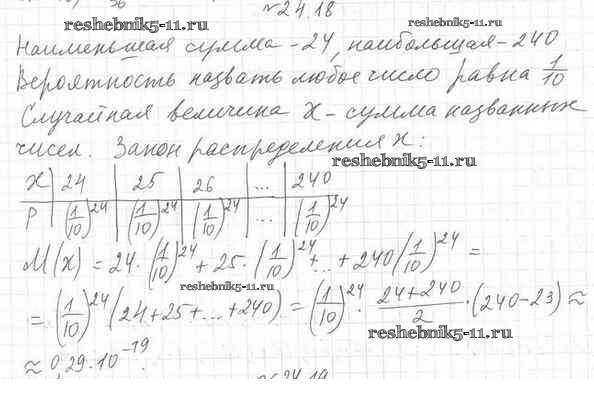 №24.18
reshebnik5-11.ru
reshebnik5-11.ru
Наименьшая сумма - 24, наибольшая - 240
Вероятность назвать любое число равна 1/10
Случайная величина X - сумма названных
чисел. Закон распределения X:
reshebnik5-11.ru
X | 24 | 25 | 26 | ... | 240
P | (1/10)^24 | (1/10)^24 | (1/10)^24 | ... | (1/10)^24
M(x) = 24·(1/10)^24 + 25·(1/10)^24 + ... + 240(1/10)^24 =
reshebnik5-11.ru
= (1/10)^24 (24+25+...+240) = (1/10)^24 · (24+240)/2 · (240-23) ≈
reshebnik5-11.ru
≈ 0,29·10^-19.
№24.19